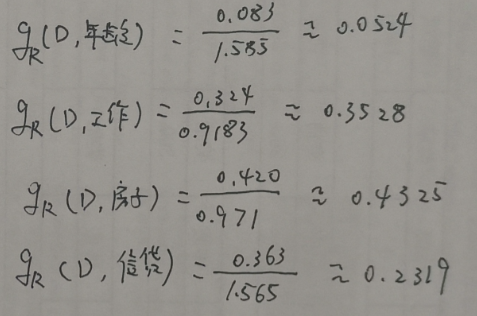 g_R(D, 年龄) = 0.083 / 1.585 ≈ 0.0524
g_R(D, 工作) = 0.324 / 0.9183 ≈ 0.3528
g_R(D, 房子) = 0.420 / 0.971 ≈ 0.4325
g_R(D, 信贷) = 0.363 / 1.565 ≈ 0.2319